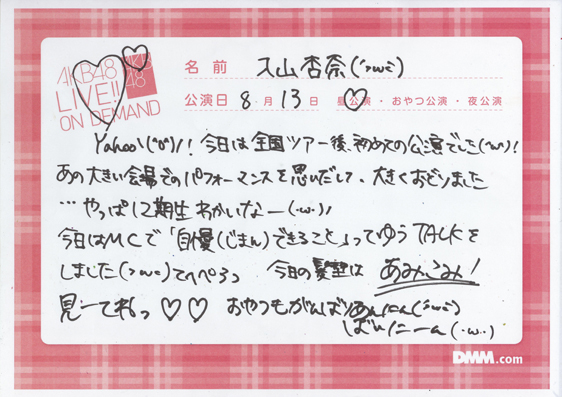 AKB48
LIVE!!
ON DEMAND
AKB
48
名前 入山杏奈(´>ω<`)
公演日 8 月 13 日 昼公演・おやつ公演・夜公演
Yahoo\(^o^)/! 今日は全国ツアー後、初めての公演でした(・ω・)!
あの大きい会場でのパフォーマンスを思いだして、大きくおどりました
…やっぱ12期生わかいなー(・ω・)/
今日はMCで「自慢(じまん)できること」ってゆうTALKを
しました(>ω<) てへぺろっ 今日の髪型は あみこみ!
見ーてねっ ♡♡ おやつもがんばりあんにん(´ω`)
ばいにーん(・ω・)
DMM.com